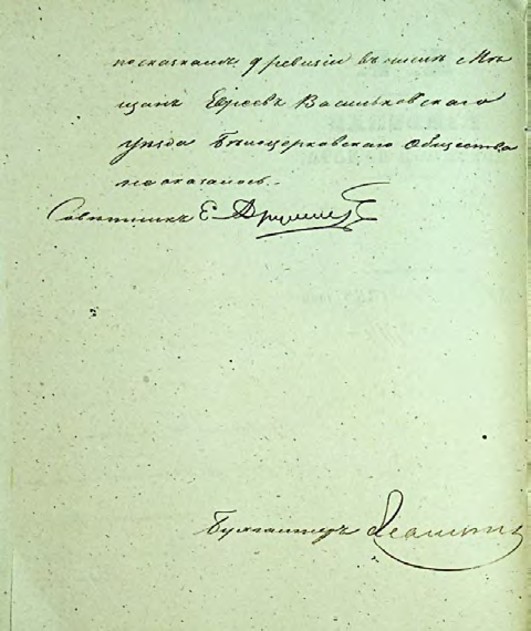 по сказкамъ 9 ревизіи въ числѣ мѣ
щанъ Евреевъ Васильковскаго
уѣзда Бѣлоцерковскаго Общества
не оказалось.
Совѣтникъ Е.
Бухгалтеръ